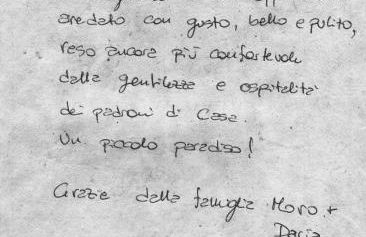 aredato con gusto, bello e pulito,
reso ancora più confortevole
dalla gentilezza e ospitalità
dei padroni di Casa.
Un piccolo paradiso!
Grazie dalla famiglia Moro +
Daria